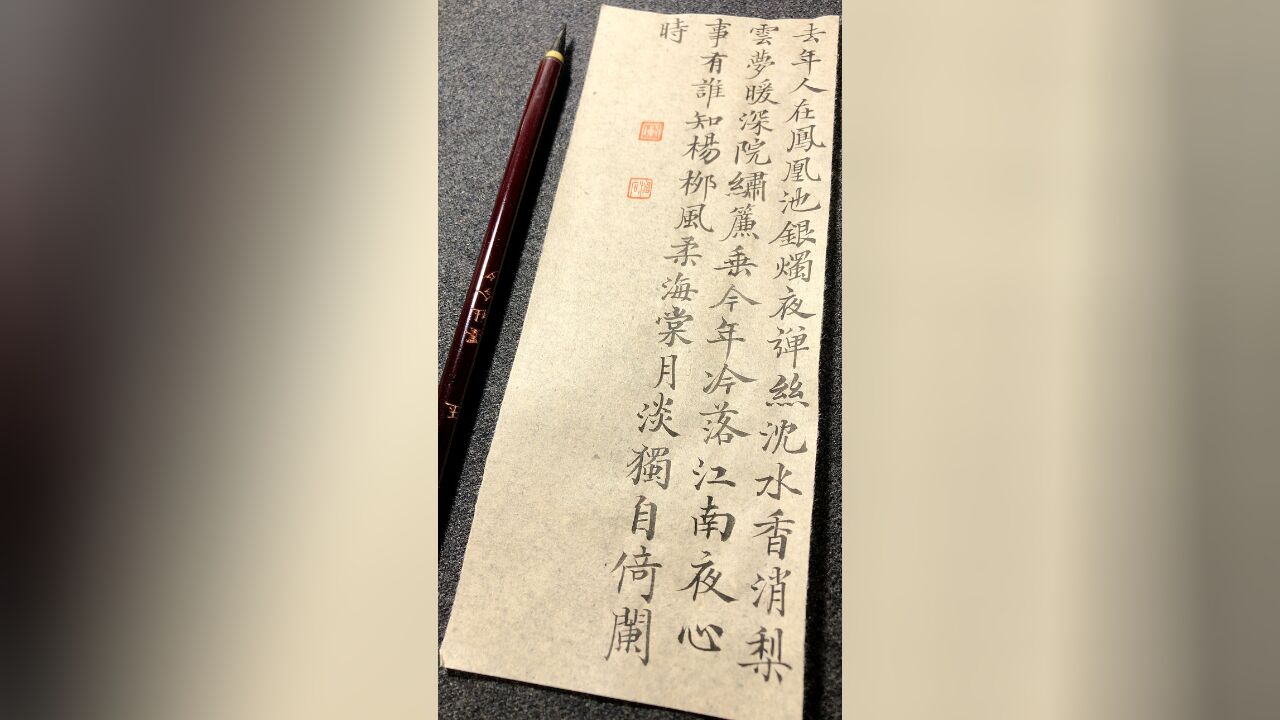 去年人在鳳凰池銀燭夜彈絲沈水香消梨
雲夢暖深院繡簾垂今年冷落江南夜心
事有誰知楊柳風柔海棠月淡獨自倚闌
時